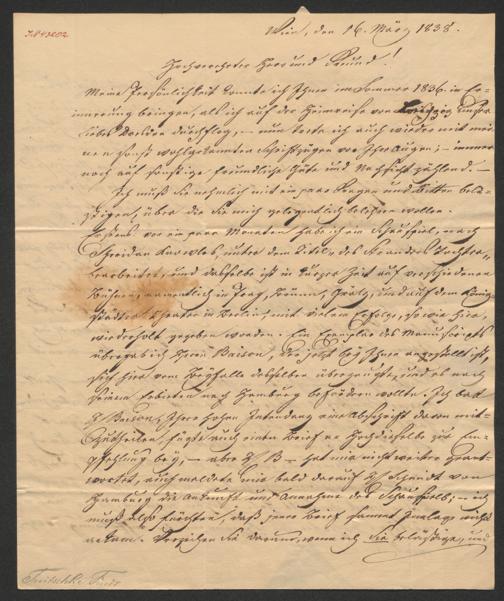 Wien, den 16. März 1838.
Hochverehrter Herr und Freund!
Meine Persönlichkeit konnte ich Ihnen im Sommer 1836 in Er-
innerung bringen, als ich auf der Heimreise von Leipzig
liebes Dresden durchflog, – nun trete ich auch wieder mit mei-
nen sonst wohlgekannten Schriftzügen vor Ihre Augen; – immer
noch auf sonstige freundliche Güte und Nachsicht zählend. –
Ich muß Sie nehmlich mit ein paar Fragen und Bitten belä-
stigen, über die Sie mich gelegentlich belehren wollen.
vor ein paar Monaten habe ich ein Schauspiel, nach
Sheridan Knowles, unter dem Titel „des Tochter"
bearbeitet, und dasselbe ist in kurzer Zeit auf verschiedenen
Bühnen, namentlich in Pest, Brünn, Grätz, und auf dem König-
städter Theater in Berlin, mit vielem Erfolge, so wie hier,
wiederholt gegeben worden. Ein Exemplar des Manuscripts
übergab ich Herrn Baison, der jetzt bey Ihnen angestellt ist,
sich hier vom Beyfalle desselben überzeugte, und es nach
seinem nach Hamburg befördern wollte. Ich bat
H Baison, Ihrer hohen Intendanz eine Abschrift davon mit-
zutheilen, fügte auch einen Brief an Hochdieselbe zur Em-
pfehlung bey, – aber H B – hat mir nicht weiter geant-
wortet, auch meldete mir bald darauf H Schmidt von
Hamburg die Ankunft und Annahme des Schauspiels; – ich
muß also fürchten, daß jener Brief sammt Einlage nicht
ankam. Verzeihen Sie darum, wenn ich Sie belästige, und